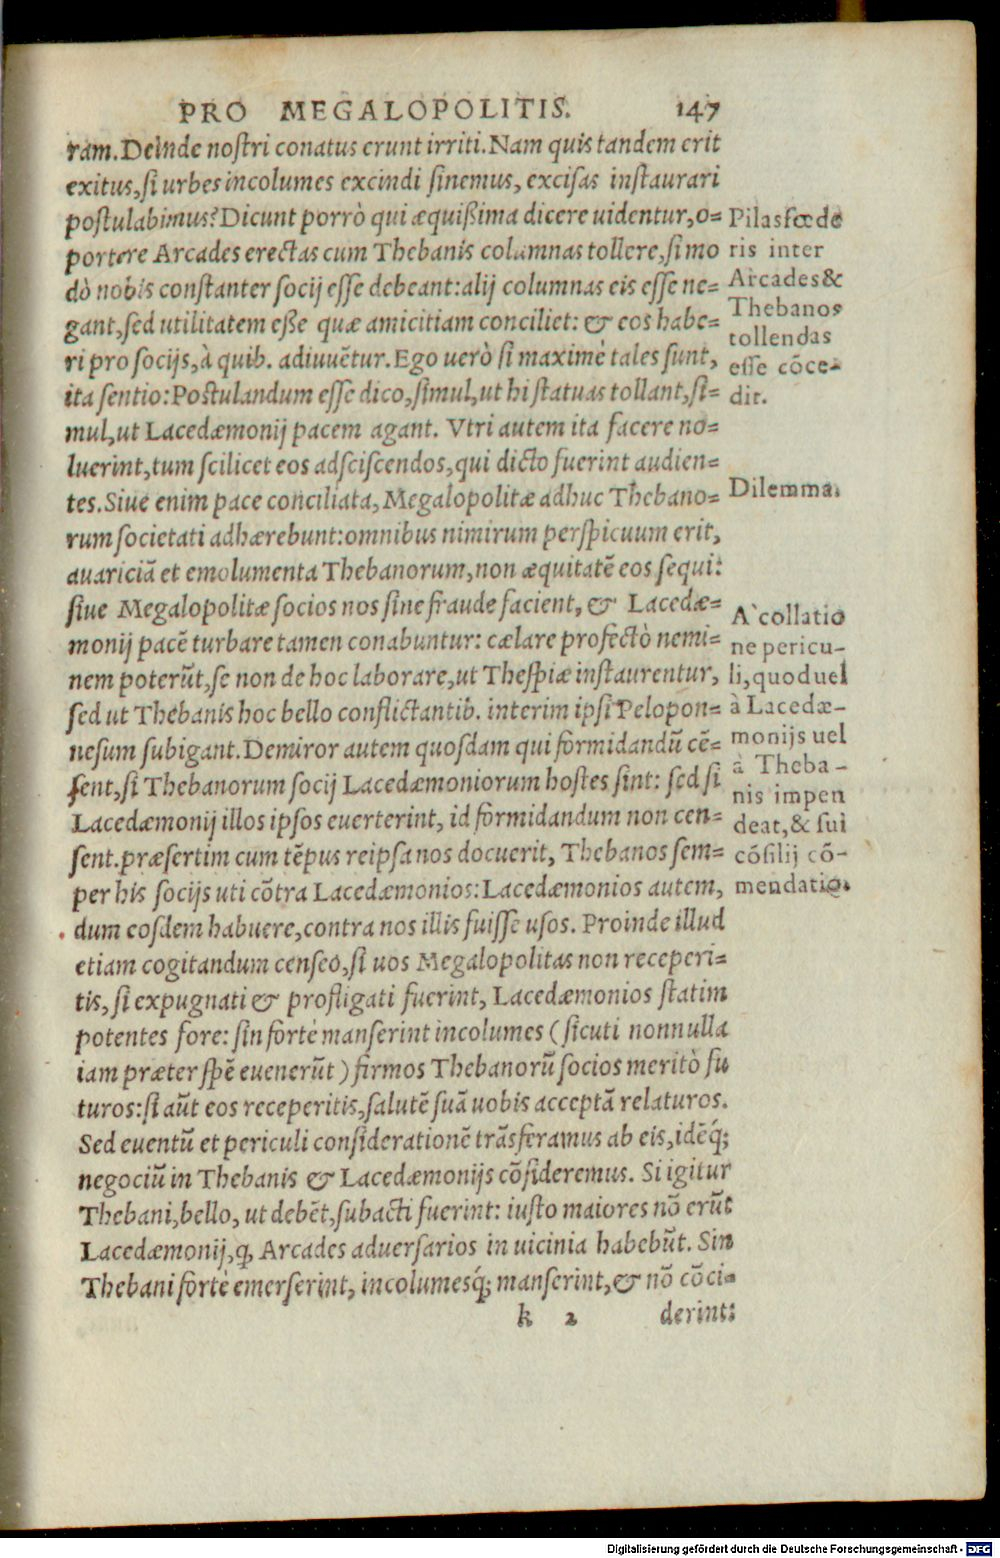 PRO MEGALOPOLITIS. 147
ram. Deinde nostri conatus erunt irriti. Nam quis tandem erit
exitus, si urbes incolumes excindi sinemus, excisas instaurari
postulabimus? Dicunt porrò qui æquißima dicere uidentur, o=
portere Arcades erectas cum Thebanis columnas tollere, si mo
dò nobis constanter socij esse debeant: alij columnas eis esse ne=
gant, sed utilitatem eße quæ amicitiam conciliet: & eos habe=
ri pro socijs, à quib. adiuuētur. Ego uerò si maximè tales sunt,
ita sentio: Postulandum esse dico, simul, ut hi statuas tollant, si=
mul, ut Lacedæmonij pacem agant. Vtri autem ita facere no=
luerint, tum scilicet eos adsciscendos, qui dicto fuerint audien=
tes. Siue enim pace conciliata, Megalopolitæ adhuc Thebano=
rum societati adhærebunt: omnibus nimirum perspicuum erit,
auariciā et emolumenta Thebanorum, non æquitatē eos sequi:
siue Megalopolitæ socios nos sine fraude facient, & Lacedæ=
monij pacē turbare tamen conabuntur: cælare profectò nemi=
nem poterūt, se non de hoc laborare, ut Thespiæ instaurentur,
sed ut Thebanis hoc bello conflictantib. interim ipsi Pelopon=
nesum subigant. Demiror autem quosdam qui formidandū cē=
sent, si Thebanorum socij Lacedæmoniorum hostes sint: sed si
Lacedæmonij illos ipsos euerterint, id formidandum non cen=
sent. præsertim cum tēpus reipsa nos docuerit, Thebanos sem=
per his socijs uti cōtra Lacedæmonios: Lacedæmonios autem,
dum eosdem habuere, contra nos illis fuisse usos. Proinde illud
etiam cogitandum censeo, si uos Megalopolitas non receperi=
tis, si expugnati & profligati fuerint, Lacedæmonios statim
potentes fore: sin fortè manserint incolumes (sicuti nonnulla
iam præter spē euenerūt) firmos Thebanorū socios meritò fu
turos: si aūt eos receperitis, salutē suā uobis acceptā relaturos.
Sed euentū et periculi considerationē trāsferamus ab eis, idēq́;
negociū in Thebanis & Lacedæmonijs cōsideremus. Si igitur
Thebani, bello, ut debēt, subacti fuerint: iusto maiores nō erūt
Lacedæmonij, ꝙ Arcades aduersarios in uicinia habebūt. Sin
Thebani fortè emerserint, incolumesq́; manserint, & nō cōci=
k 2 derint:
Pilas fœde
ris inter
Arcades &
Thebanos
tollendas
esse cōce-
dit.
Dilemma.
A` collatio
ne pericu-
li, quod uel
à Lacedæ-
monijs uel
à Theba-
nis impen
deat, & sui
cōsilij cō-
mendatio.
Digitalisierung gefördert durch die Deutsche Forschungsgemeinschaft - DFG